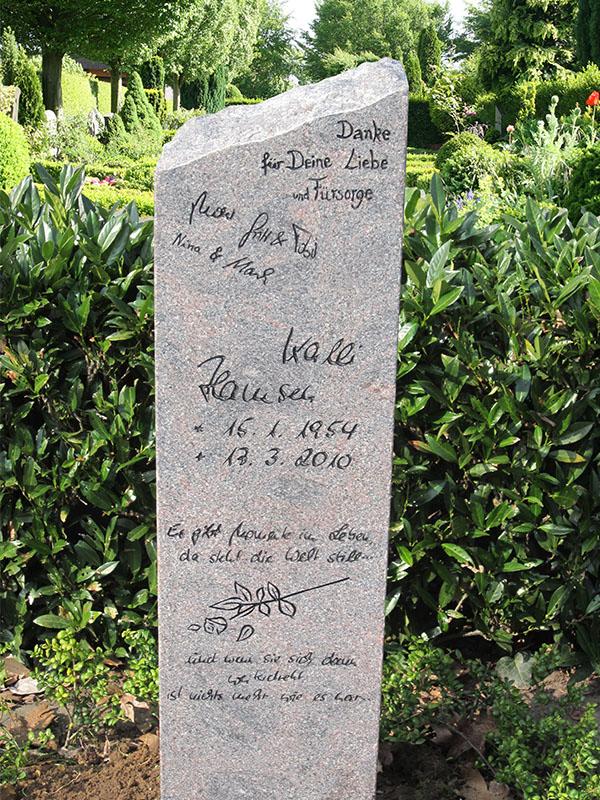 Danke
für Deine Liebe
und Fürsorge
&
Nina & Mark
Walli
Hansen
* 15. 1. 1954
+ 13. 3. 2010
Es gibt Momente im Leben,
da steht die Welt still...
und wenn sie sich dann
ist nichts mehr wie es war.